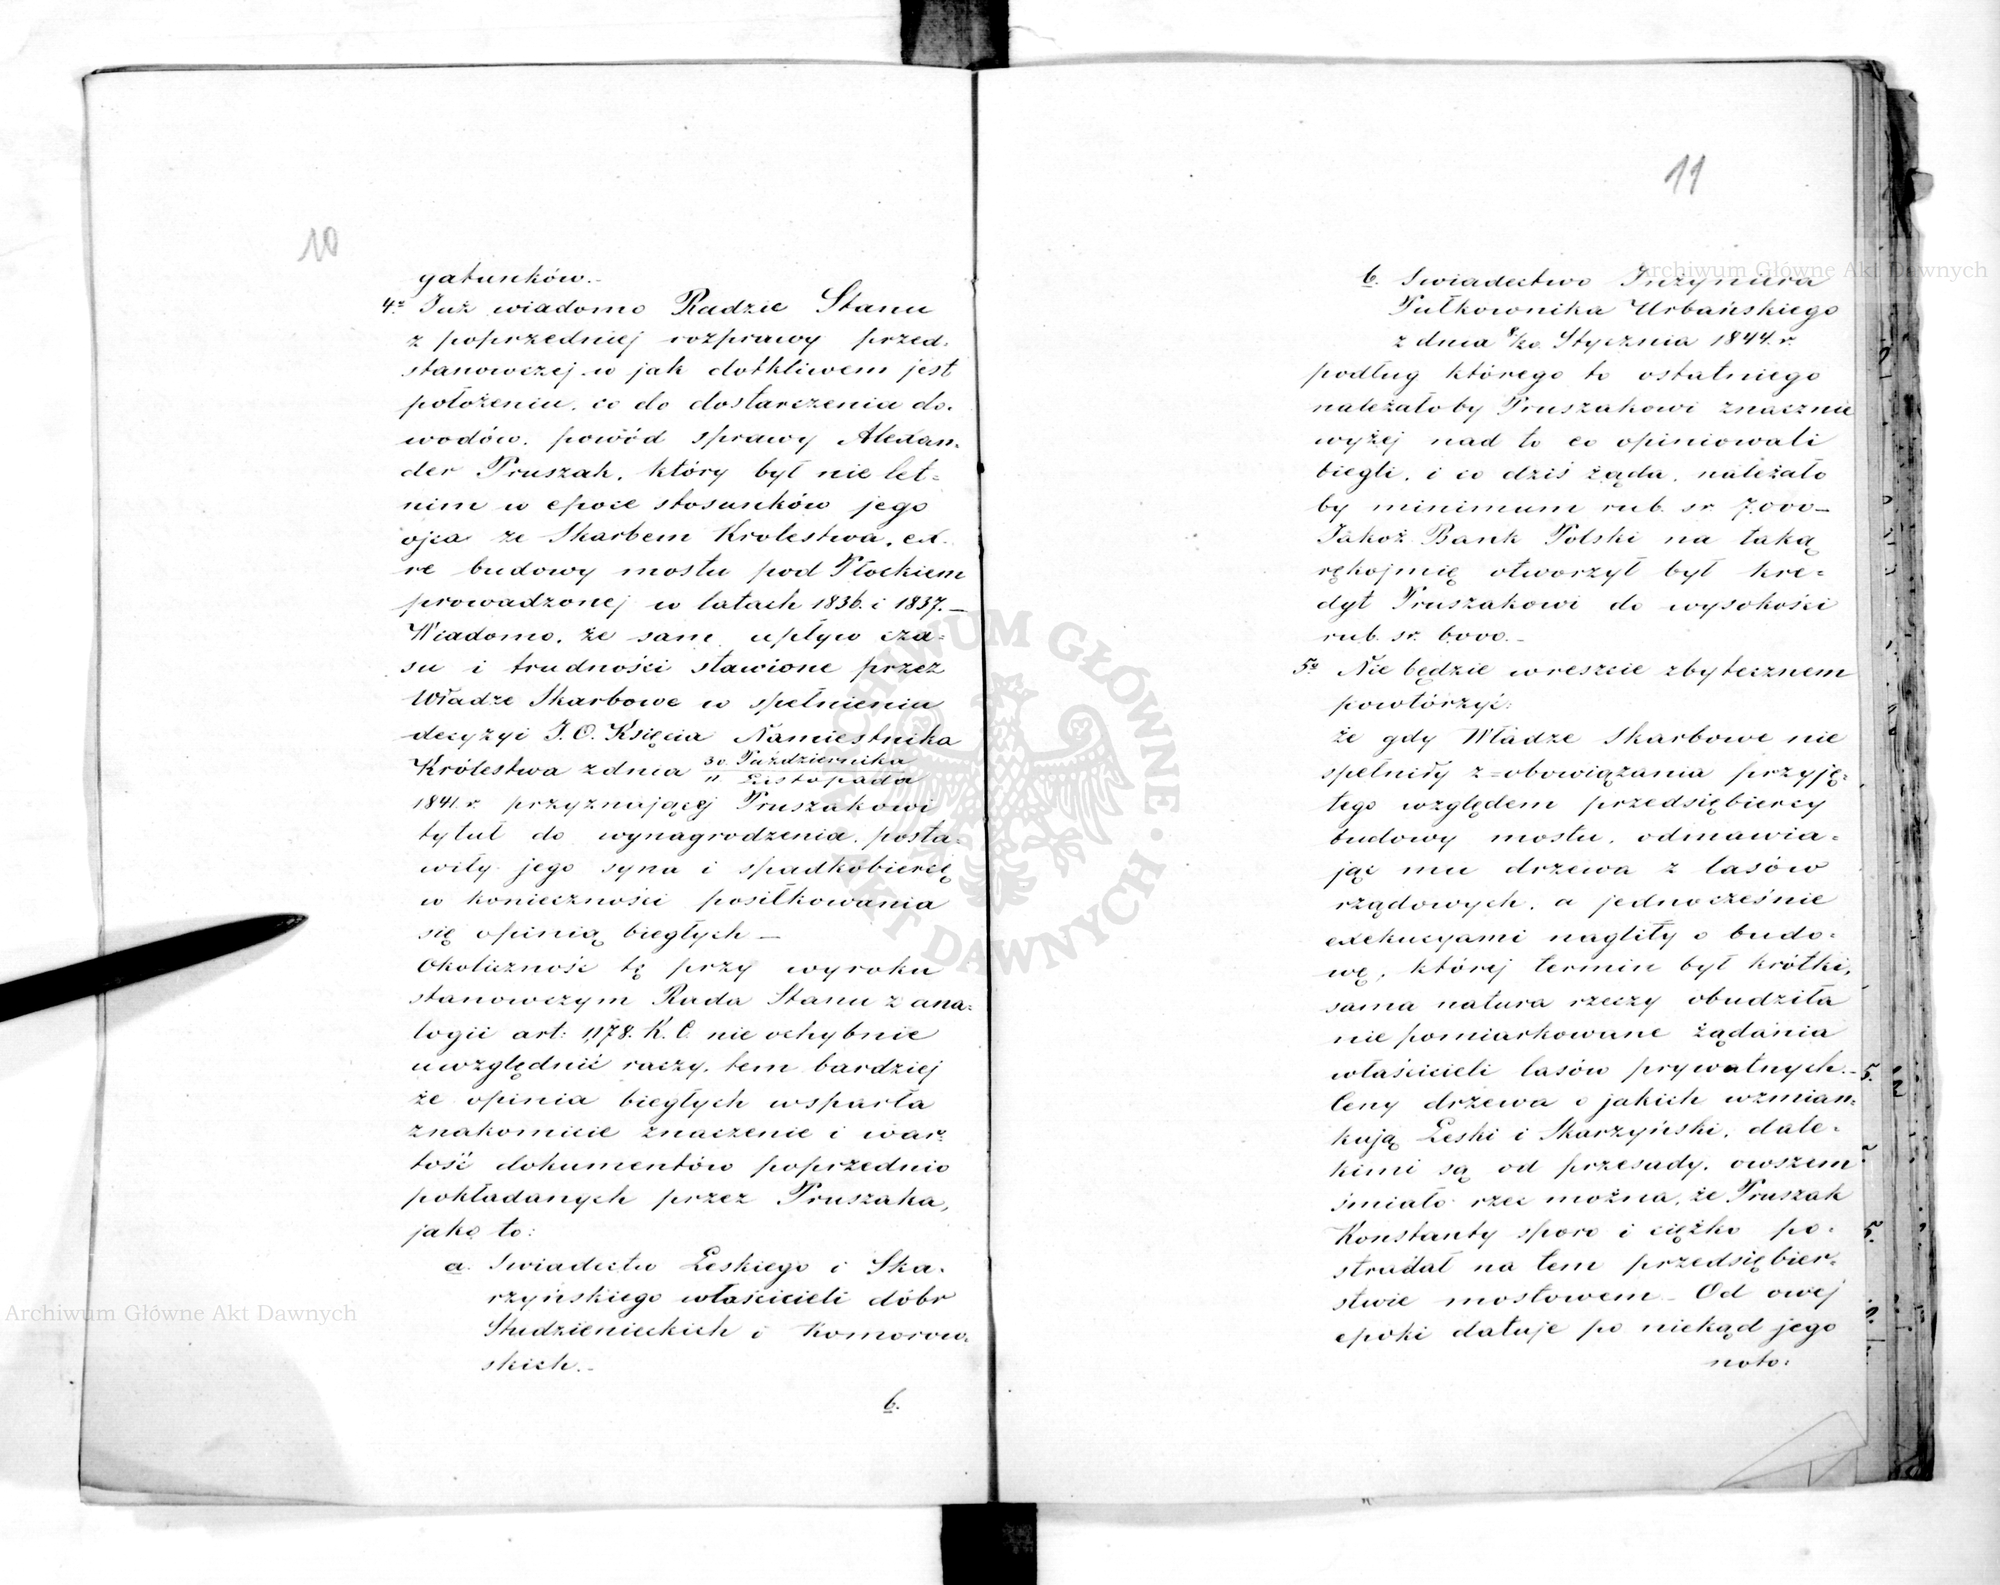 10
gatunków.-
4o Już wiadomo Radzie Stanu
z poprzedniej rozprawy przed-
stanowczej w jak dotkliwem jest
położeniu, co do dostarczenia do-
wodów, powód sprawy Alexan-
der Pruszak, który był nie let-
nim w epoce stosunków jego
ojca ze Skarbem Krolestwa, ex-
re budowy mostu pod Płockiem
prowadzonej w latach 1836. i 1837.-
Wiadomo, że sam upływ cza-
su i trudności stawione przez
Władze Skarbowe w spełnieniu
decyzyi J. O. Księcia Namiestnika
Królestwa z dnia 30 Października / 11 Listopada
1841. r. przyznającej Pruszakowi
tytuł do wynagrodzenia, posta-
wiły jego syna i spadkobiercę
w konieczności posiłkowania
się opinią biegłych -
Okoliczność tę przy wyroku
stanowczym Rada Stanu z ana-
logii art: 1,178. K. C. nie ochybnie
uwzględnić raczy, tem bardziej
że opinia biegłych wsparła
znakomicie znaczenie i war-
tość dokumentów poprzednio
pokładanych przez Pruszaka,
jako to:
a. Swiadectwo Leskiego i Ska-
rzyńskiego właścicieli dóbr
Studzienieckich i Komorow-
skich.-
b.
11
b. Swiadectwo Inżyniera
Pułkownika Urbańskiego
z dnia 8/20. Stycznia 1844. r.
podług którego to ostatniego
należałoby Pruszakowi znacznie
wyżej nad to co opiniowali
biegli, i co dziś żąda, należało
by minimum rub. sr. 7.000-
Jakoż Bank Polski na taką
rękojmię otworzył był kre-
dyt Pruszakowi do wysokości
rub. sr. 6000.-
5o Nie będzie wreszcie zbytecznem
powtórzyć:
że gdy Władze Skarbowe nie
spełniły z=obowiązania przyję-
tego względem przedsiębiercy
budowy mostu, odmawia-
jąc mu drzewa z lasów
rządowych, a jednocześnie
exekucyami nagliły o budo-
wę, której termin był krótki,
sama natura rzeczy obudziła
nie pomiarkowane żądania
właścicieli lasów prywatnych.-
Ceny drzewa o jakich wzmian-
kują Leski i Skarzyński, dale-
kimi są od przesady, owszem
śmiało rzec można, że Pruszak
Konstanty sporo i ciężko po-
stradał na tem przedsiębier-
stwie mostowem - Od owej
epoki datuje po niekąd jego
noto-
Archiwum Główne Akt Dawnych
Archiwum Główne Akt Dawnych
ARCHIWUM GŁÓWNE AKT DAWNYCH